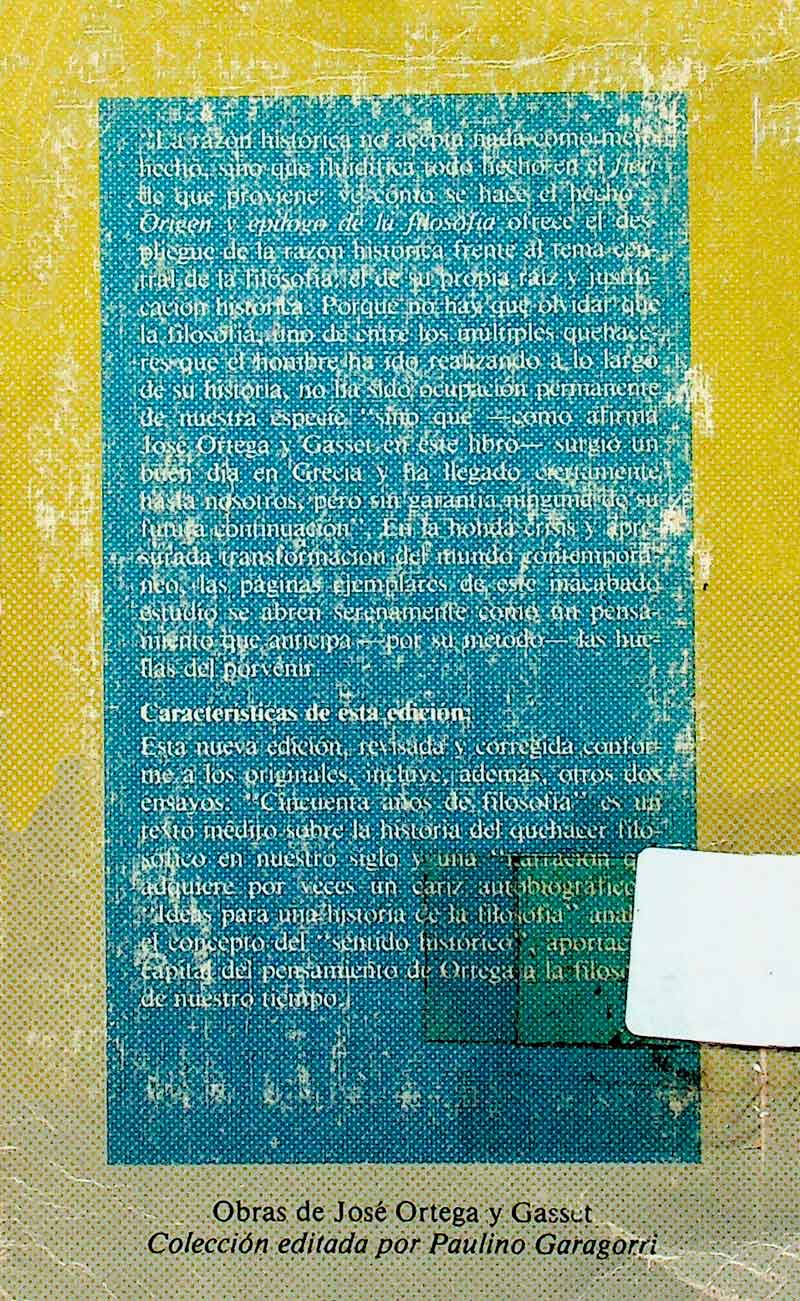 "La razón histórica no acepta nada como mero
hecho, sino que fluidifica todo hecho en el fieri
de que proviene: ve cómo se hace el hecho".
Origen y epílogo de la filosofía ofrece el des-
pliegue de la razón histórica frente al tema cen-
tral de la filosofía: el de su propia raíz y justifi-
cación histórica. Porque no hay que olvidar que
la filosofía, uno de entre los múltiples quehace-
res que el hombre ha ido realizando a lo largo
de su historia, no ha sido ocupación permanente
de nuestra especie "sino que —como afirma
José Ortega y Gasset en este libro— surgió un
buen día en Grecia y ha llegado ciertamente
hasta nosotros, pero sin garantía ninguna de su
futura continuación". En la honda crisis y apre-
surada transformación del mundo contemporá-
neo, las páginas ejemplares de este inacabado
estudio se abren serenamente como un pensa-
miento que anticipa —por su método— las hue-
llas del porvenir.
Características de esta edición:
Esta nueva edición, revisada y corregida confor-
me a los originales, incluye, además, otros dos
ensayos: "Cincuenta años de filosofía" es un
texto inédito sobre la historia del quehacer filo-
sófico en nuestro siglo y una "narración
adquiere por veces un cariz autobiográfico
"Ideas para una historia de la filosofía"
el concepto del "sentido histórico",
capital del pensamiento de Ortega a la
de nuestro tiempo.]
Obras de José Ortega y Gasset
Colección editada por Paulino Garagorri